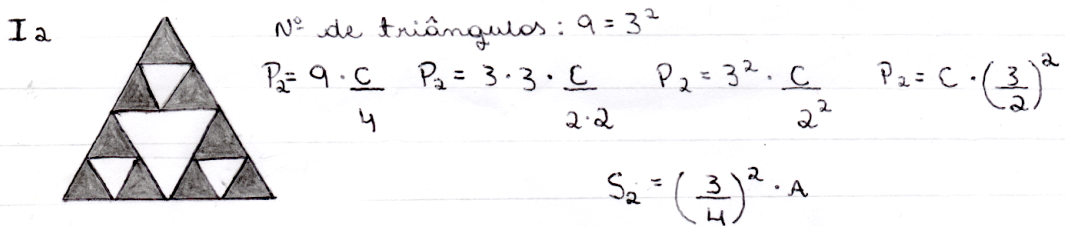 I2 Nº de triângulos: 9 = 3²
P₂ = 9 · C/4 P₂ = 3 · 3 · C/2·2 P₂ = 3² · C/2² P₂ = C · (3/2)²
S₂ = (3/4)² · A